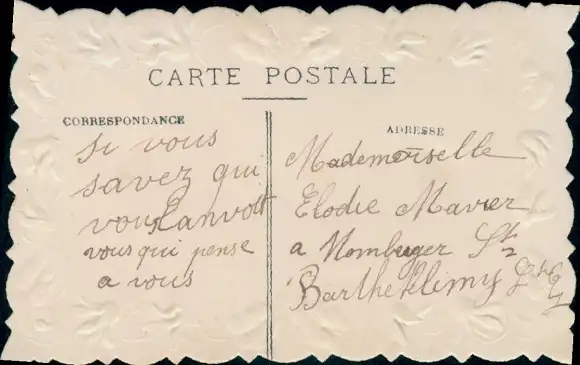 CARTE POSTALE
CORRESPONDANCE
si vous
savez qui
vous Lanvoit
vous qui pense
a vous
ADRESSE
Mademoiselle
Elodie Mavier
a Mombuger St
Barthelémy